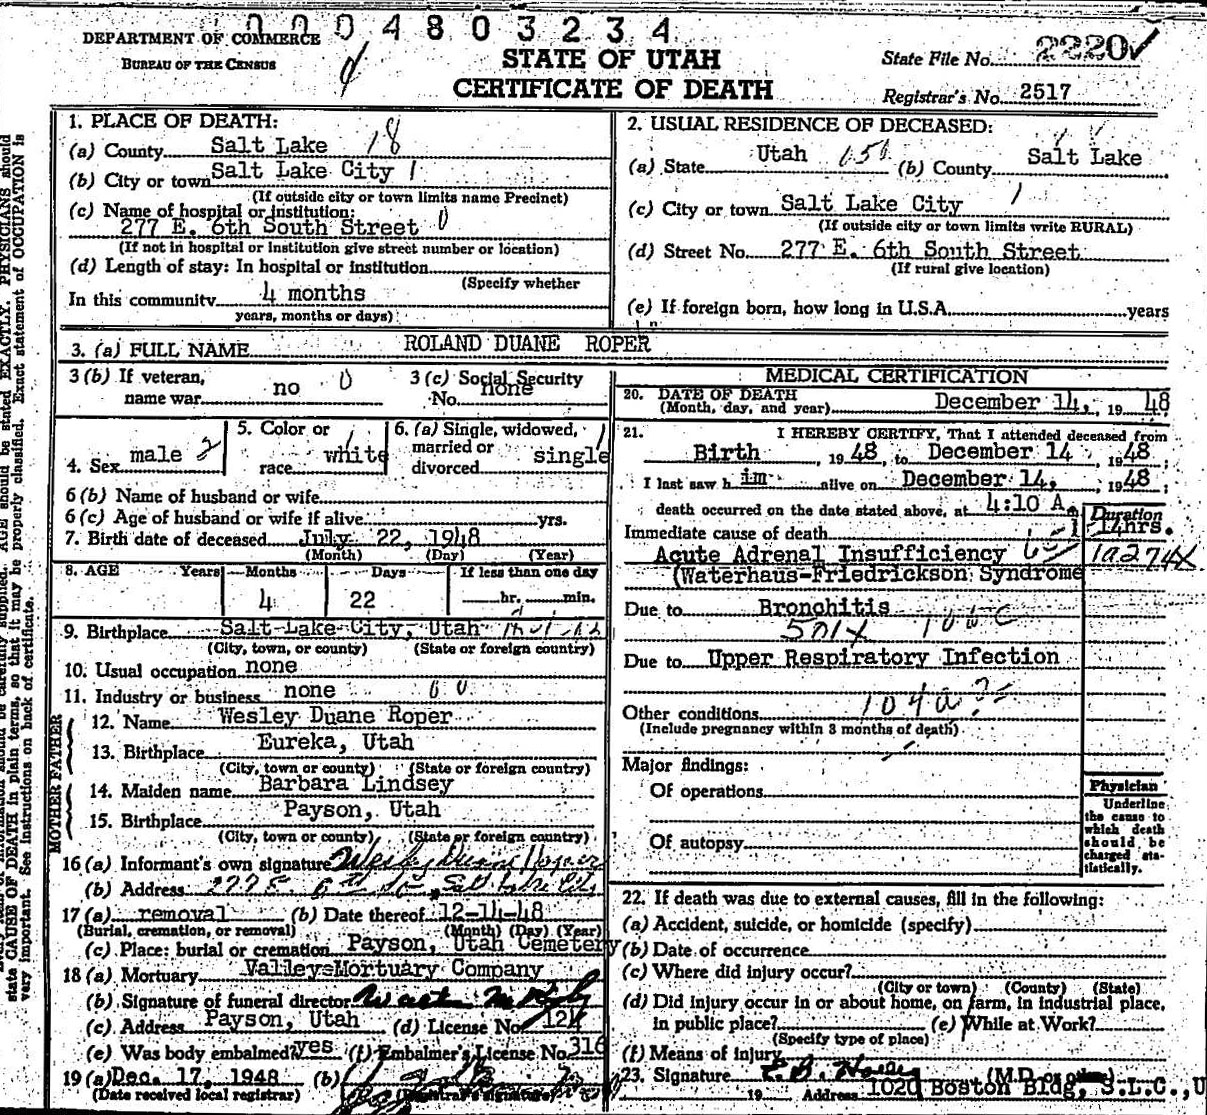 0004803234
DEPARTMENT OF COMMERCE
BUREAU OF THE CENSUS
STATE OF UTAH
CERTIFICATE OF DEATH
State File No. 2220
Registrar's No. 2517
1. PLACE OF DEATH:
(a) County Salt Lake 18
(b) City or town Salt Lake City 1
(If outside city or town limits name Precinct)
(c) Name of hospital or institution:
277 E. 6th South Street 0
(If not in hospital or institution give street number or location)
(d) Length of stay: In hospital or institution
(Specify whether
In this community 4 months
years, months or days)
2. USUAL RESIDENCE OF DECEASED:
(a) State Utah 151 (b) County Salt Lake
(c) City or town Salt Lake City 1
(If outside city or town limits write RURAL)
(d) Street No. 277 E. 6th South Street
(If rural give location)
(e) If foreign born, how long in U.S.A. years
3. (a) FULL NAME ROLAND DUANE ROPER
3 (b) If veteran, name war no 0
3 (c) Social Security No. none
4. Sex male 2
5. Color or race white 1
6. (a) Single, widowed, married or divorced single 1
6 (b) Name of husband or wife
6 (c) Age of husband or wife if alive yrs.
7. Birth date of deceased July 22, 1948
(Month) (Day) (Year)
8. AGE Years Months Days If less than one day
4 22 hr. min.
9. Birthplace Salt Lake City, Utah
(City, town, or county) (State or foreign country)
10. Usual occupation none
11. Industry or business none 0 0
FATHER
12. Name Wesley Duane Roper
13. Birthplace Eureka, Utah
(City, town or county) (State or foreign country)
MOTHER
14. Maiden name Barbara Lindsey
15. Birthplace Payson, Utah
(City, town or county) (State or foreign country)
16 (a) Informant's own signature Wesley Duane Roper
(b) Address 277 E. 6th So., Salt Lake City
17 (a) removal (b) Date thereof 12-14-48
(Burial, cremation, or removal) (Month) (Day) (Year)
(c) Place: burial or cremation Payson, Utah Cemetery
18 (a) Mortuary Valley Mortuary Company
(b) Signature of funeral director
(c) Address Payson, Utah (d) License No. 124
(e) Was body embalmed? yes (f) Embalmer's License No. 316
19 (a) Dec. 17, 1948 (b)
(Date received local registrar) (Registrar's signature)
MEDICAL CERTIFICATION
20. DATE OF DEATH
(Month, day, and year) December 14, 1948
21. I HEREBY CERTIFY, That I attended deceased from
Birth, 1948, to December 14, 1948;
I last saw him alive on December 14, 1948;
death occurred on the date stated above, at 4:10 A.
Duration
Immediate cause of death 14hrs.
Acute Adrenal Insufficiency 1a274X
(Waterhaus-Friedrickson Syndrome
Due to Bronchitis
501X 106c
Due to Upper Respiratory Infection
104a?
Other conditions
(Include pregnancy within 3 months of death)
Major findings:
Of operations
Of autopsy
Physician
Underline
the cause to
which death
should be
charged sta-
tistically.
22. If death was due to external causes, fill in the following:
(a) Accident, suicide, or homicide (specify)
(b) Date of occurrence
(c) Where did injury occur?
(City or town) (County) (State)
(d) Did injury occur in or about home, on farm, in industrial place,
in public place? (e) While at Work?
(Specify type of place)
(f) Means of injury
23. Signature (M.D. or other)
19 Address 1020 Boston Bldg, S.L.C., U
PHYSICIANS should
state CAUSE OF DEATH in plain terms, so that it may be properly classified. Exact statement of OCCUPATION is
very important. See instructions on back of certificate.